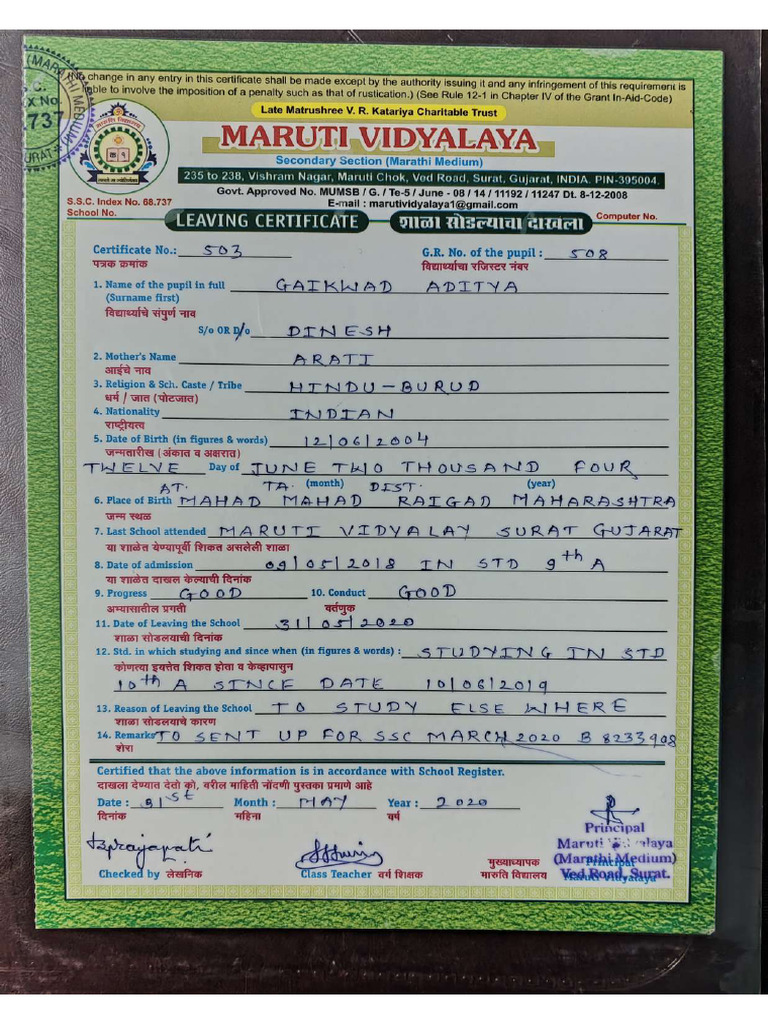 (No change in any entry in this certificate shall be made except by the authority issuing it and any infringement of this requirement is
liable to involve the imposition of a penalty such as that of rustication.) (See Rule 12-1 in Chapter IV of the Grant In-Aid-Code)
(MARATHI MEDIUM)
x No.
737
SURAT
Late Matrushree V. R. Katariya Charitable Trust
MARUTI VIDYALAYA
Secondary Section (Marathi Medium)
235 to 238, Vishram Nagar, Maruti Chok, Ved Road, Surat, Gujarat, INDIA. PIN-395004.
Govt. Approved No. MUMSB / G. / Te-5 / June - 08 / 14 / 11192 / 11247 Dt. 8-12-2008
S.S.C. Index No. 68.737 E-mail : marutividyalaya1@gmail.com
School No. Computer No.
LEAVING CERTIFICATE शाळा सोडल्याचा दाखला
Certificate No.: 503 G.R. No. of the pupil : 508
पत्रक क्रमांक विद्यार्थ्याचा रजिस्टर नंबर
1. Name of the pupil in full GAIKWAD ADITYA
(Surname first)
विद्यार्थ्याचे संपुर्ण नाव
S/o OR D/o DINESH
2. Mother's Name ARATI
आईचे नाव
3. Religion & Sch. Caste / Tribe HINDU-BURUD
धर्म / जात (पोटजात)
4. Nationality INDIAN
राष्ट्रीयत्व
5. Date of Birth (in figures & words) 12/06/2004
जन्मतारीख (अंकात व अक्षरात)
TWELVE Day of JUNE TWO THOUSAND FOUR
AT. TA. (month) DIST. (year)
6. Place of Birth MAHAD MAHAD RAIGAD MAHARASHTRA
जन्म स्थळ
7. Last School attended MARUTI VIDYALAY SURAT GUJARAT
या शाळेत येण्यापूर्वी शिकत असलेली शाळा
8. Date of admission 09/05/2018 IN STD 9th A
या शाळेत दाखल केल्याची दिनांक
9. Progress GOOD 10. Conduct GOOD
अभ्यासातील प्रगती वर्तणुक
11. Date of Leaving the School 31/05/2020
शाळा सोडलयाची दिनांक
12. Std. in which studying and since when (in figures & words) : STUDYING IN STD
कोणत्या इयत्तेत शिकत होता व केव्हापासुन
10th A SINCE DATE 10/06/2019
13. Reason of Leaving the School TO STUDY ELSE WHERE
शाळा सोडलयाचे कारण
14. Remarks TO SENT UP FOR SSC MARCH 2020 B 8233908
शेरा
Certified that the above information is in accordance with School Register.
दाखला देण्यात देतो को, वरील माहिती नोंदणी पुस्तका प्रमाणे आहे
Date : 31st Month : MAY Year : 2020
दिनांक महिना वर्ष
Principal
Maruti Vidyalaya
(Marathi Medium)
Ved Road, Surat.
मुख्याध्यापक Principal
Checked by लेखनिक Class Teacher वर्ग शिक्षक मारुति विद्यालय Maruti Vidyalaya